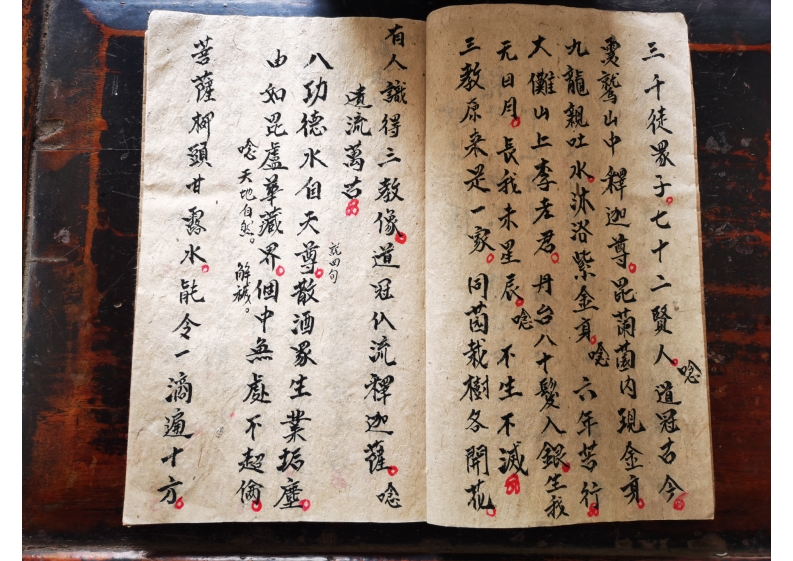 三千徒眾子。七十二賢人。唸道冠古今。
靈鷲山中釋迦尊。毘蘭園内現金身。
九龍親吐水。沐浴紫金身。唸六年苦行。
大儺山上李老君。丹台八十鬓入銀。生我
元日月。長我未星辰。唸不生不滅。
三教原来是一家。同茵栽樹各開花。
有人識得三教像。道冠仏流釋迦薩。唸
遺流萬古。
説四句
八功德水自天尊。散酒眾生業垢塵。
由如毘盧華藏界。個中無處不超倫。
唸天地自然。解穢。
菩薩柳頭甘露水。能令一滴遍十方。